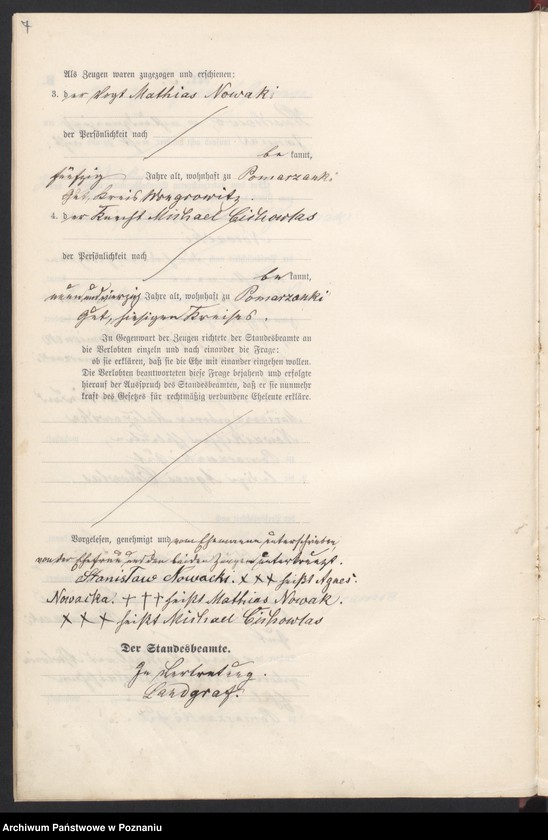 7
Als Zeugen waren zugezogen und erschienen:
3. der Vogt Mathias Nowak
der Persönlichkeit nach
be kannt,
fünfzig Jahre alt, wohnhaft zu Pomarzanki
Gut, Kreis Wongrowitz.
4. der Knecht Michael Cichowlas
der Persönlichkeit nach
be kannt,
neunundvierzig Jahre alt, wohnhaft zu Pomarzanki
Gut, hiesigen Kreises.
In Gegenwart der Zeugen richtete der Standesbeamte an
die Verlobten einzeln und nach einander die Frage:
ob sie erklären, daß sie die Ehe mit einander eingehen wollen.
Die Verlobten beantworteten diese Frage bejahend und erfolgte
hierauf der Ausspruch des Standesbeamten, daß er sie nunmehr
kraft des Gesetzes für rechtmäßig verbundene Eheleute erkläre.
Vorgelesen, genehmigt und vom Ehemanne unterschrieben,
von der Ehefrau und den beiden Zeugen unterkreuzt.
Stanisław Nowacki. +++ heißt Agnes
Nowacka. +++ heißt Mathias Nowak.
+++ heißt Michael Cichowlas
Der Standesbeamte.
In Vertretung.
Landgraf.
Archiwum Państwowe w Poznaniu